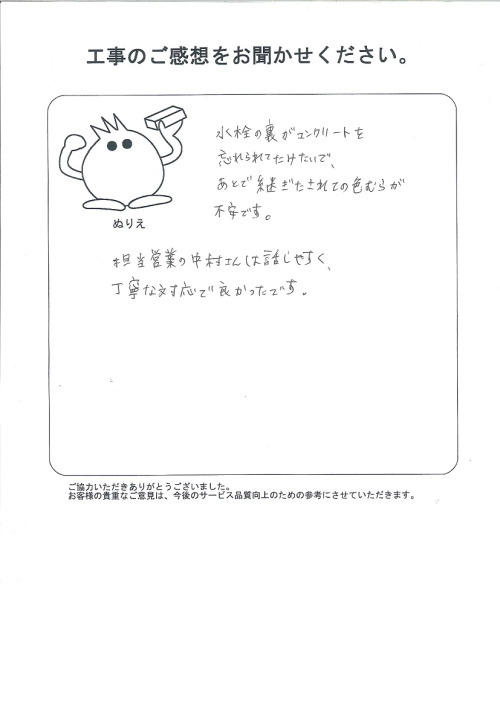 工事のご感想をお聞かせください。
水栓の裏がコンクリートを
忘れられてたけたいで、
あとで継ぎたされての色むらが
不安です。
ぬりえ
担当営業の中村さんは話しやすく、
丁寧な対応で良かったです。
ご協力いただきありがとうございました。
お客様の貴重なご意見は、今後のサービス品質向上のための参考にさせていただきます。